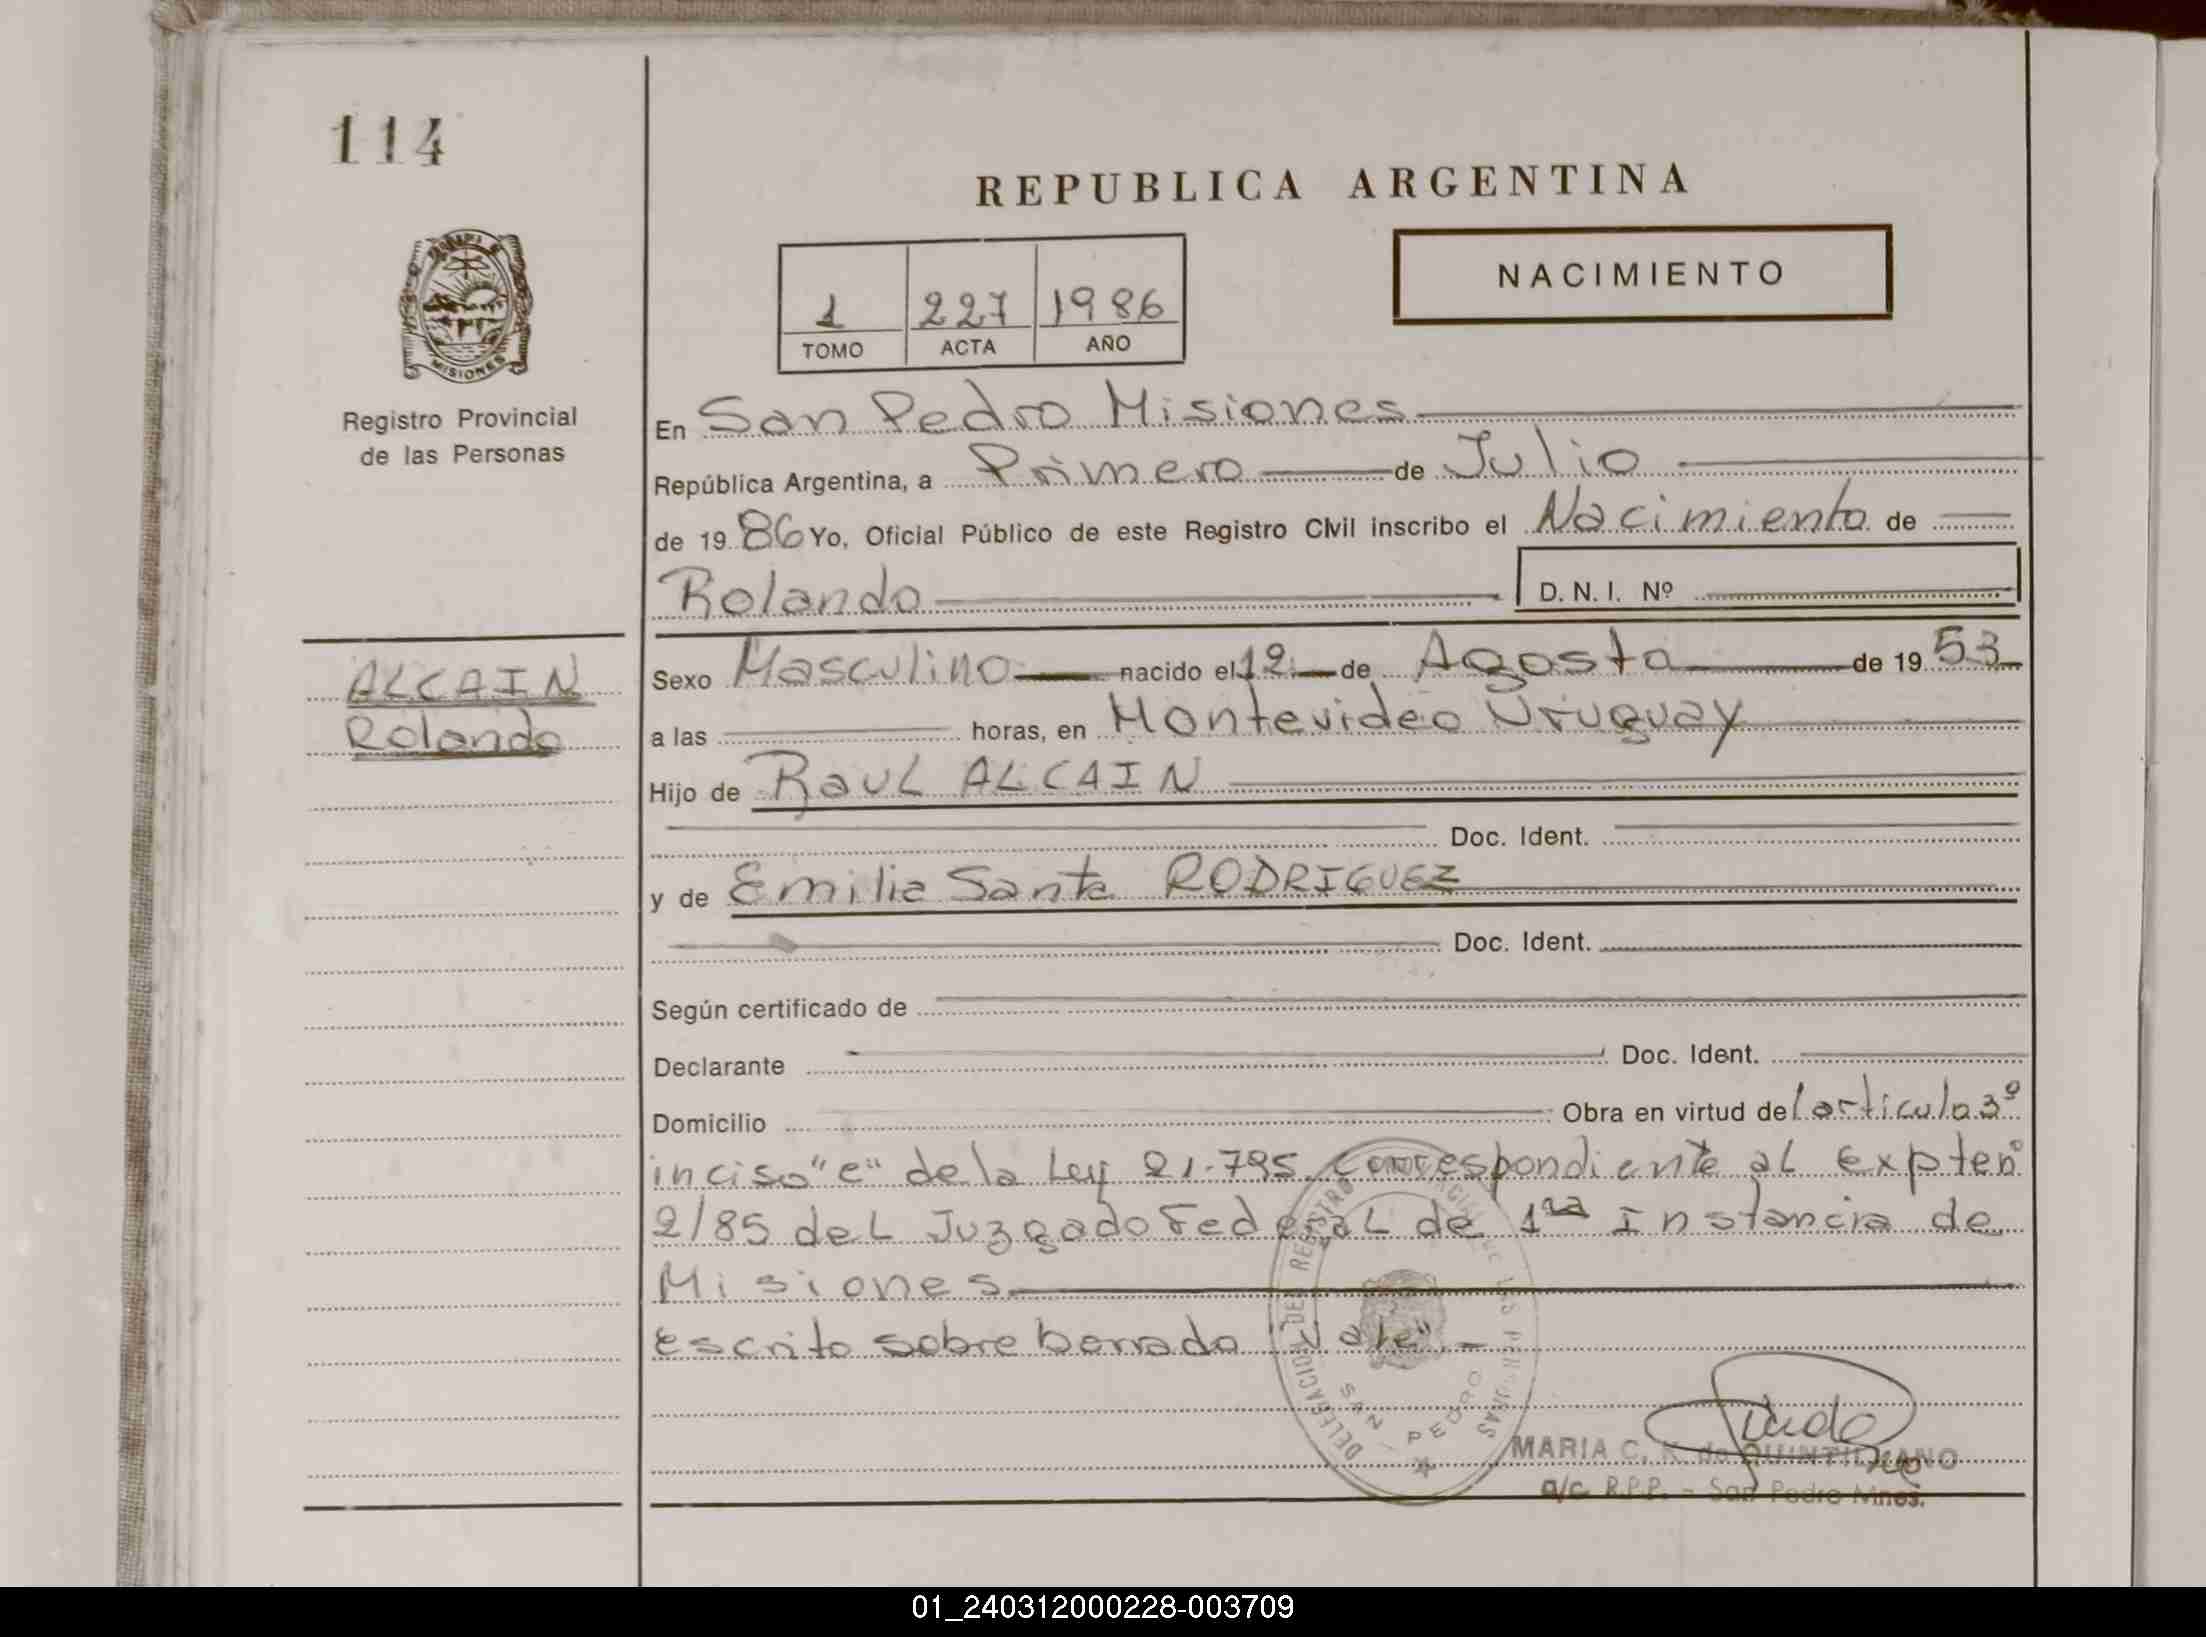 114
REPUBLICA ARGENTINA
NACIMIENTO
1 227 1986
TOMO ACTA AÑO
MISIONES
Registro Provincial
de las Personas
En San Pedro Misiones
República Argentina, a Primero de Julio
de 19 86 Yo, Oficial Público de este Registro Civil inscribo el Nacimiento de
Rolando D. N. I. Nº
ALCAIN
Rolando
Sexo Masculino nacido el 12 de Agosto de 19 53
a las horas, en Montevideo Uruguay
Hijo de Raul ALCAIN
Doc. Ident.
y de Emilia Santa RODRIGUEZ
Doc. Ident.
Según certificado de
Declarante Doc. Ident.
Domicilio Obra en virtud del articulo 3º
inciso "e" de la Ley 21.795 correspondiente al Expte nº
2/85 del Juzgado Federal de 1ra Instancia de
Misiones
escrito sobre borrado "Vale".-
DELEGACION DEL REGISTRO PROVINCIAL DE LAS PERSONAS
SAN PEDRO
MARIA C. K. de QUINTILIANO
a/c. R.P.P. - San Pedro Mnes.
01_240312000228-003709